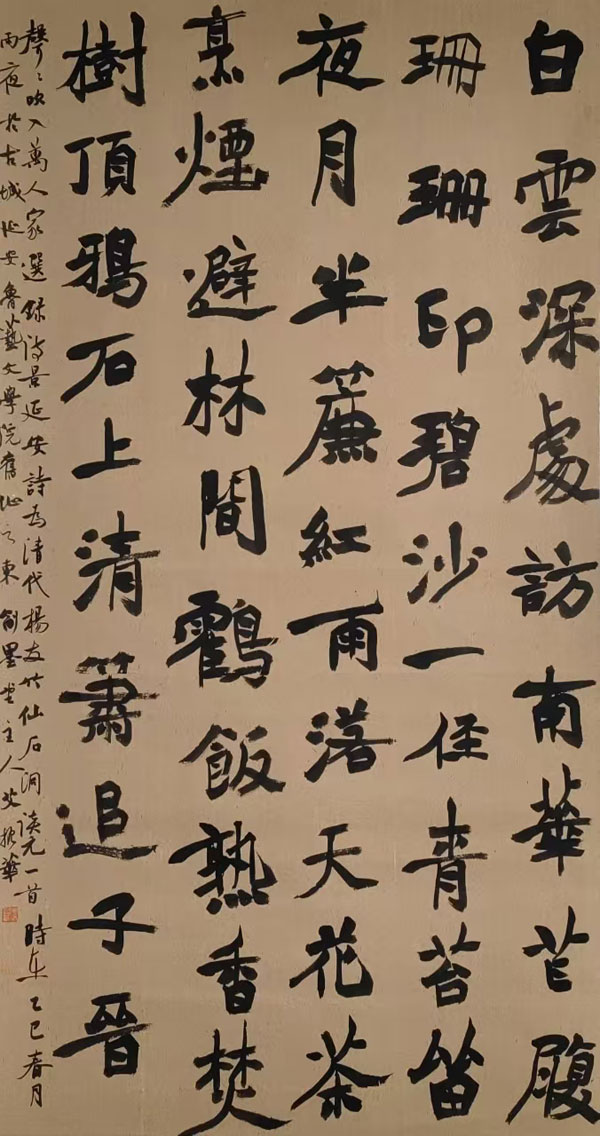 白雲深處訪南華芒屨
珊珊印碧沙一径青苔笛
夜月半簾紅雨落天花茶
烹煙避林間鶴飯熟香焚
樹頂鴉石上清簫追子晉
聲〻吹入萬人家選録詩景延安詩為清代楊友竹仙石洞談元一首時在乙巳春月
雨夜於古城延安魯藝文學院舊址之東墨堂主人振華